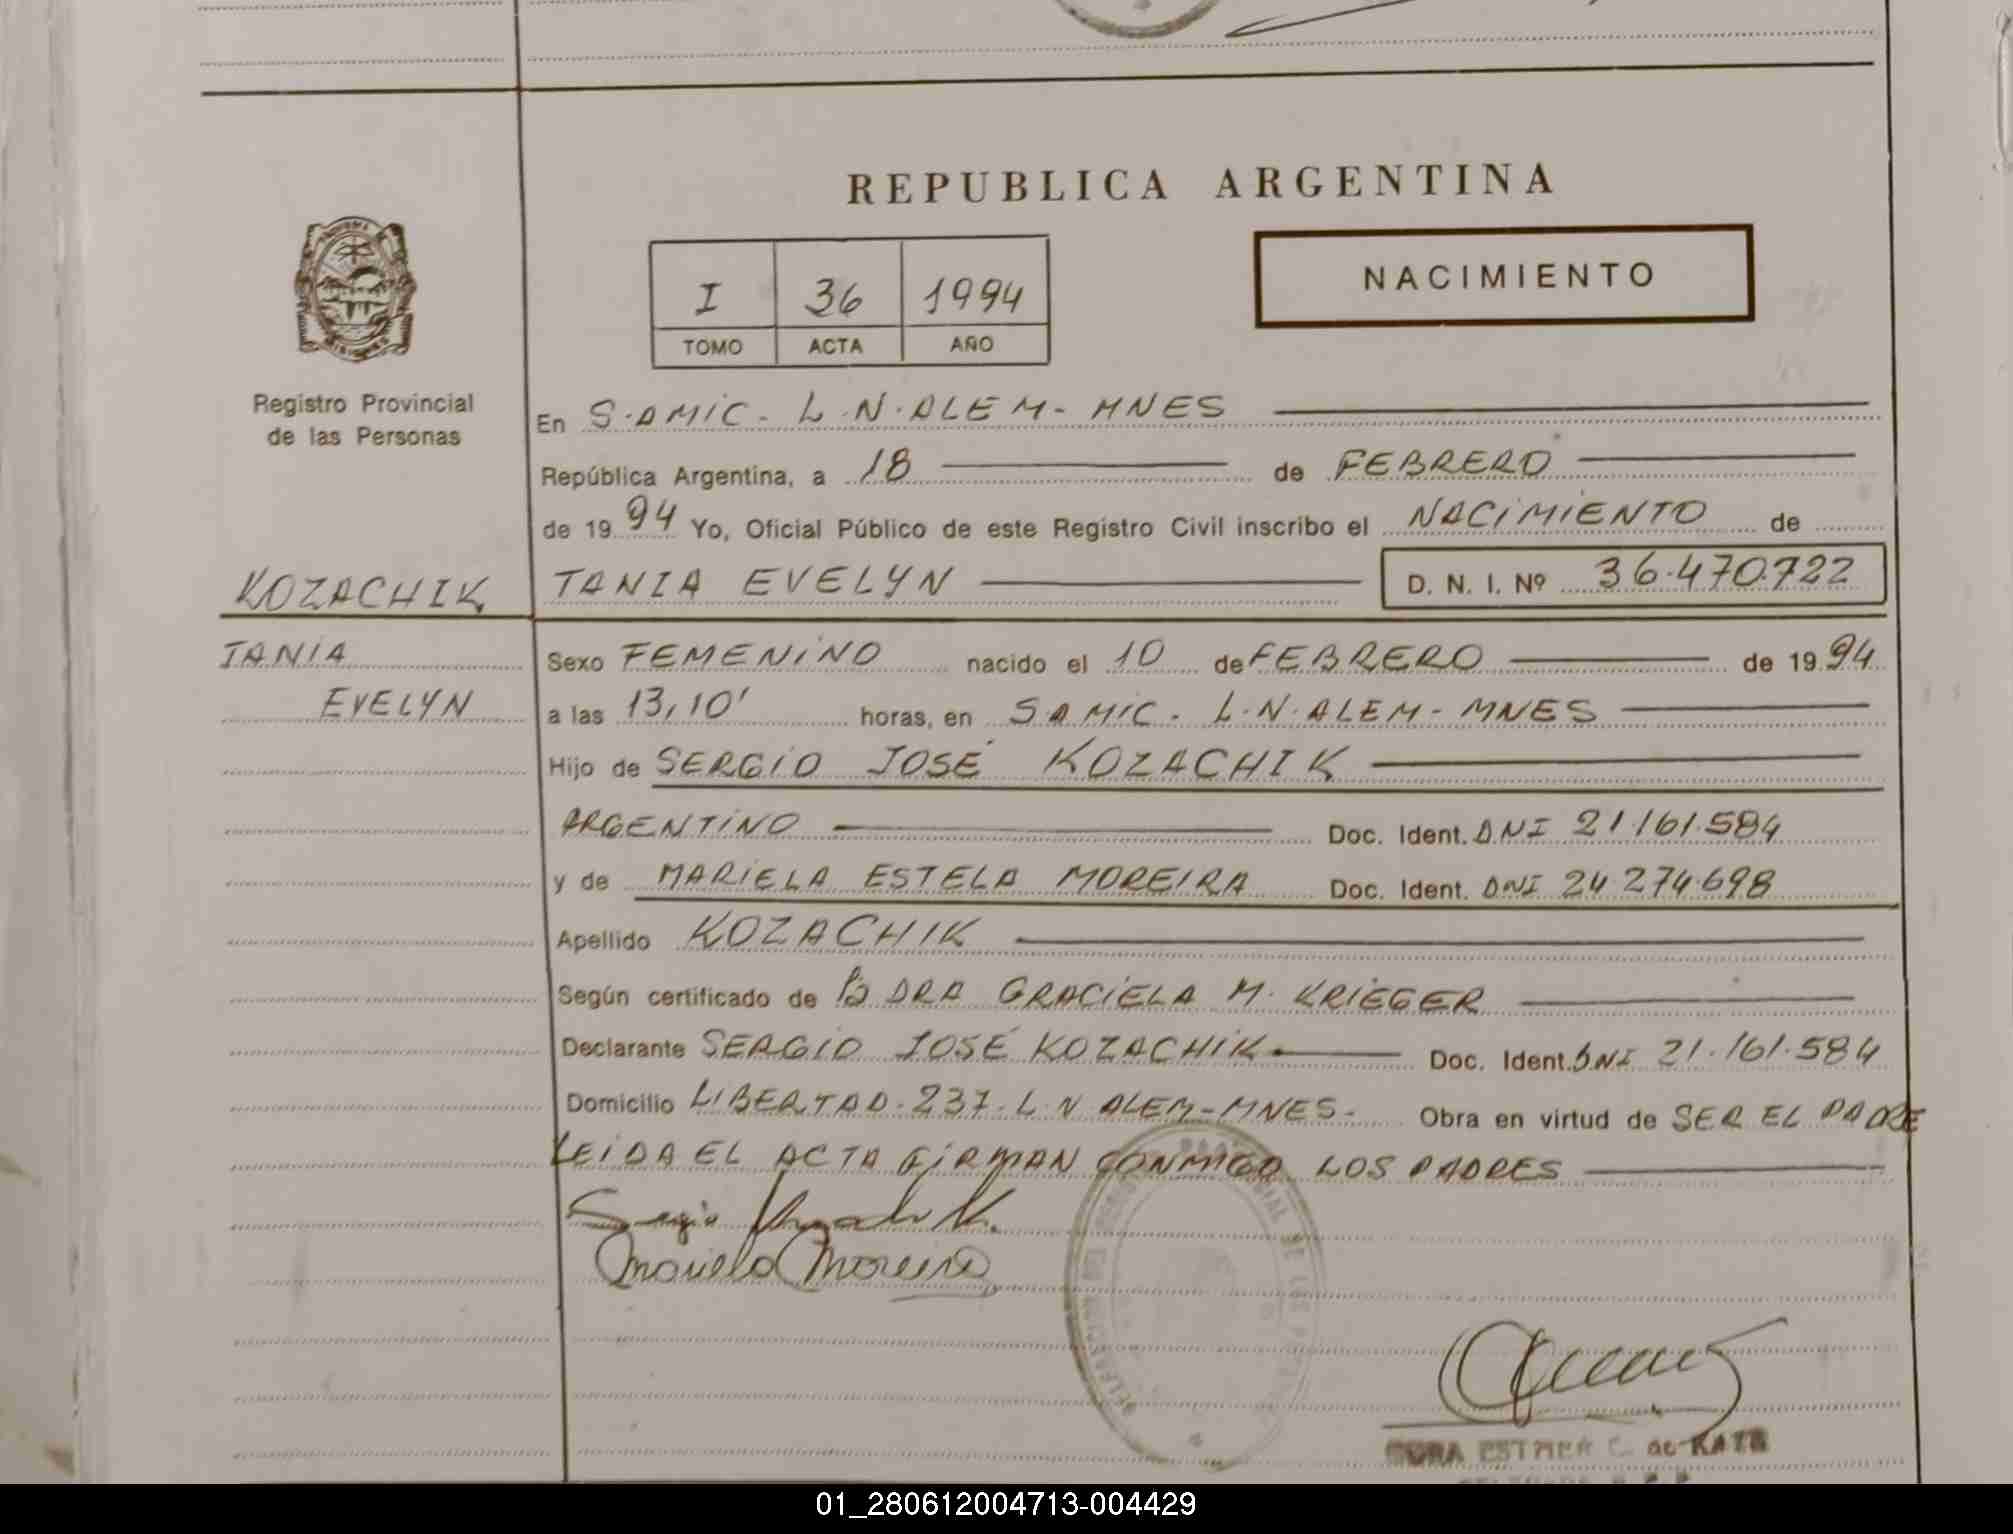 REPUBLICA ARGENTINA
I 36 1994
TOMO ACTA AÑO
NACIMIENTO
MISIONES
Registro Provincial
de las Personas
En S.AMIC. L.N.ALEM-MNES
República Argentina, a 18 de FEBRERO
de 19 94 Yo, Oficial Público de este Registro Civil inscribo el NACIMIENTO de
KOZACHIK TANIA EVELYN D. N. I. Nº 36.470.722
TANIA
EVELYN
Sexo FEMENINO nacido el 10 de FEBRERO de 19 94
a las 13,10' horas, en SAMIC. L.N.ALEM-MNES
Hijo de SERGIO JOSÉ KOZACHIK
ARGENTINO Doc. Ident. DNI 21.161.584
y de MARIELA ESTELA MOREIRA Doc. Ident. DNI 24.274.698
Apellido KOZACHIK
Según certificado de DRA GRACIELA M. KRIEGER
Declarante SERGIO JOSÉ KOZACHIK Doc. Ident. DNI 21.161.584
Domicilio LIBERTAD.237.L.N ALEM-MNES- Obra en virtud de SER EL PADRE
LEIDA EL ACTA FIRMAN CONMIGO LOS PADRES
Sergio Kozachik.
Mariela Moreira
ESTHER C. de KATZ
01_280612004713-004429